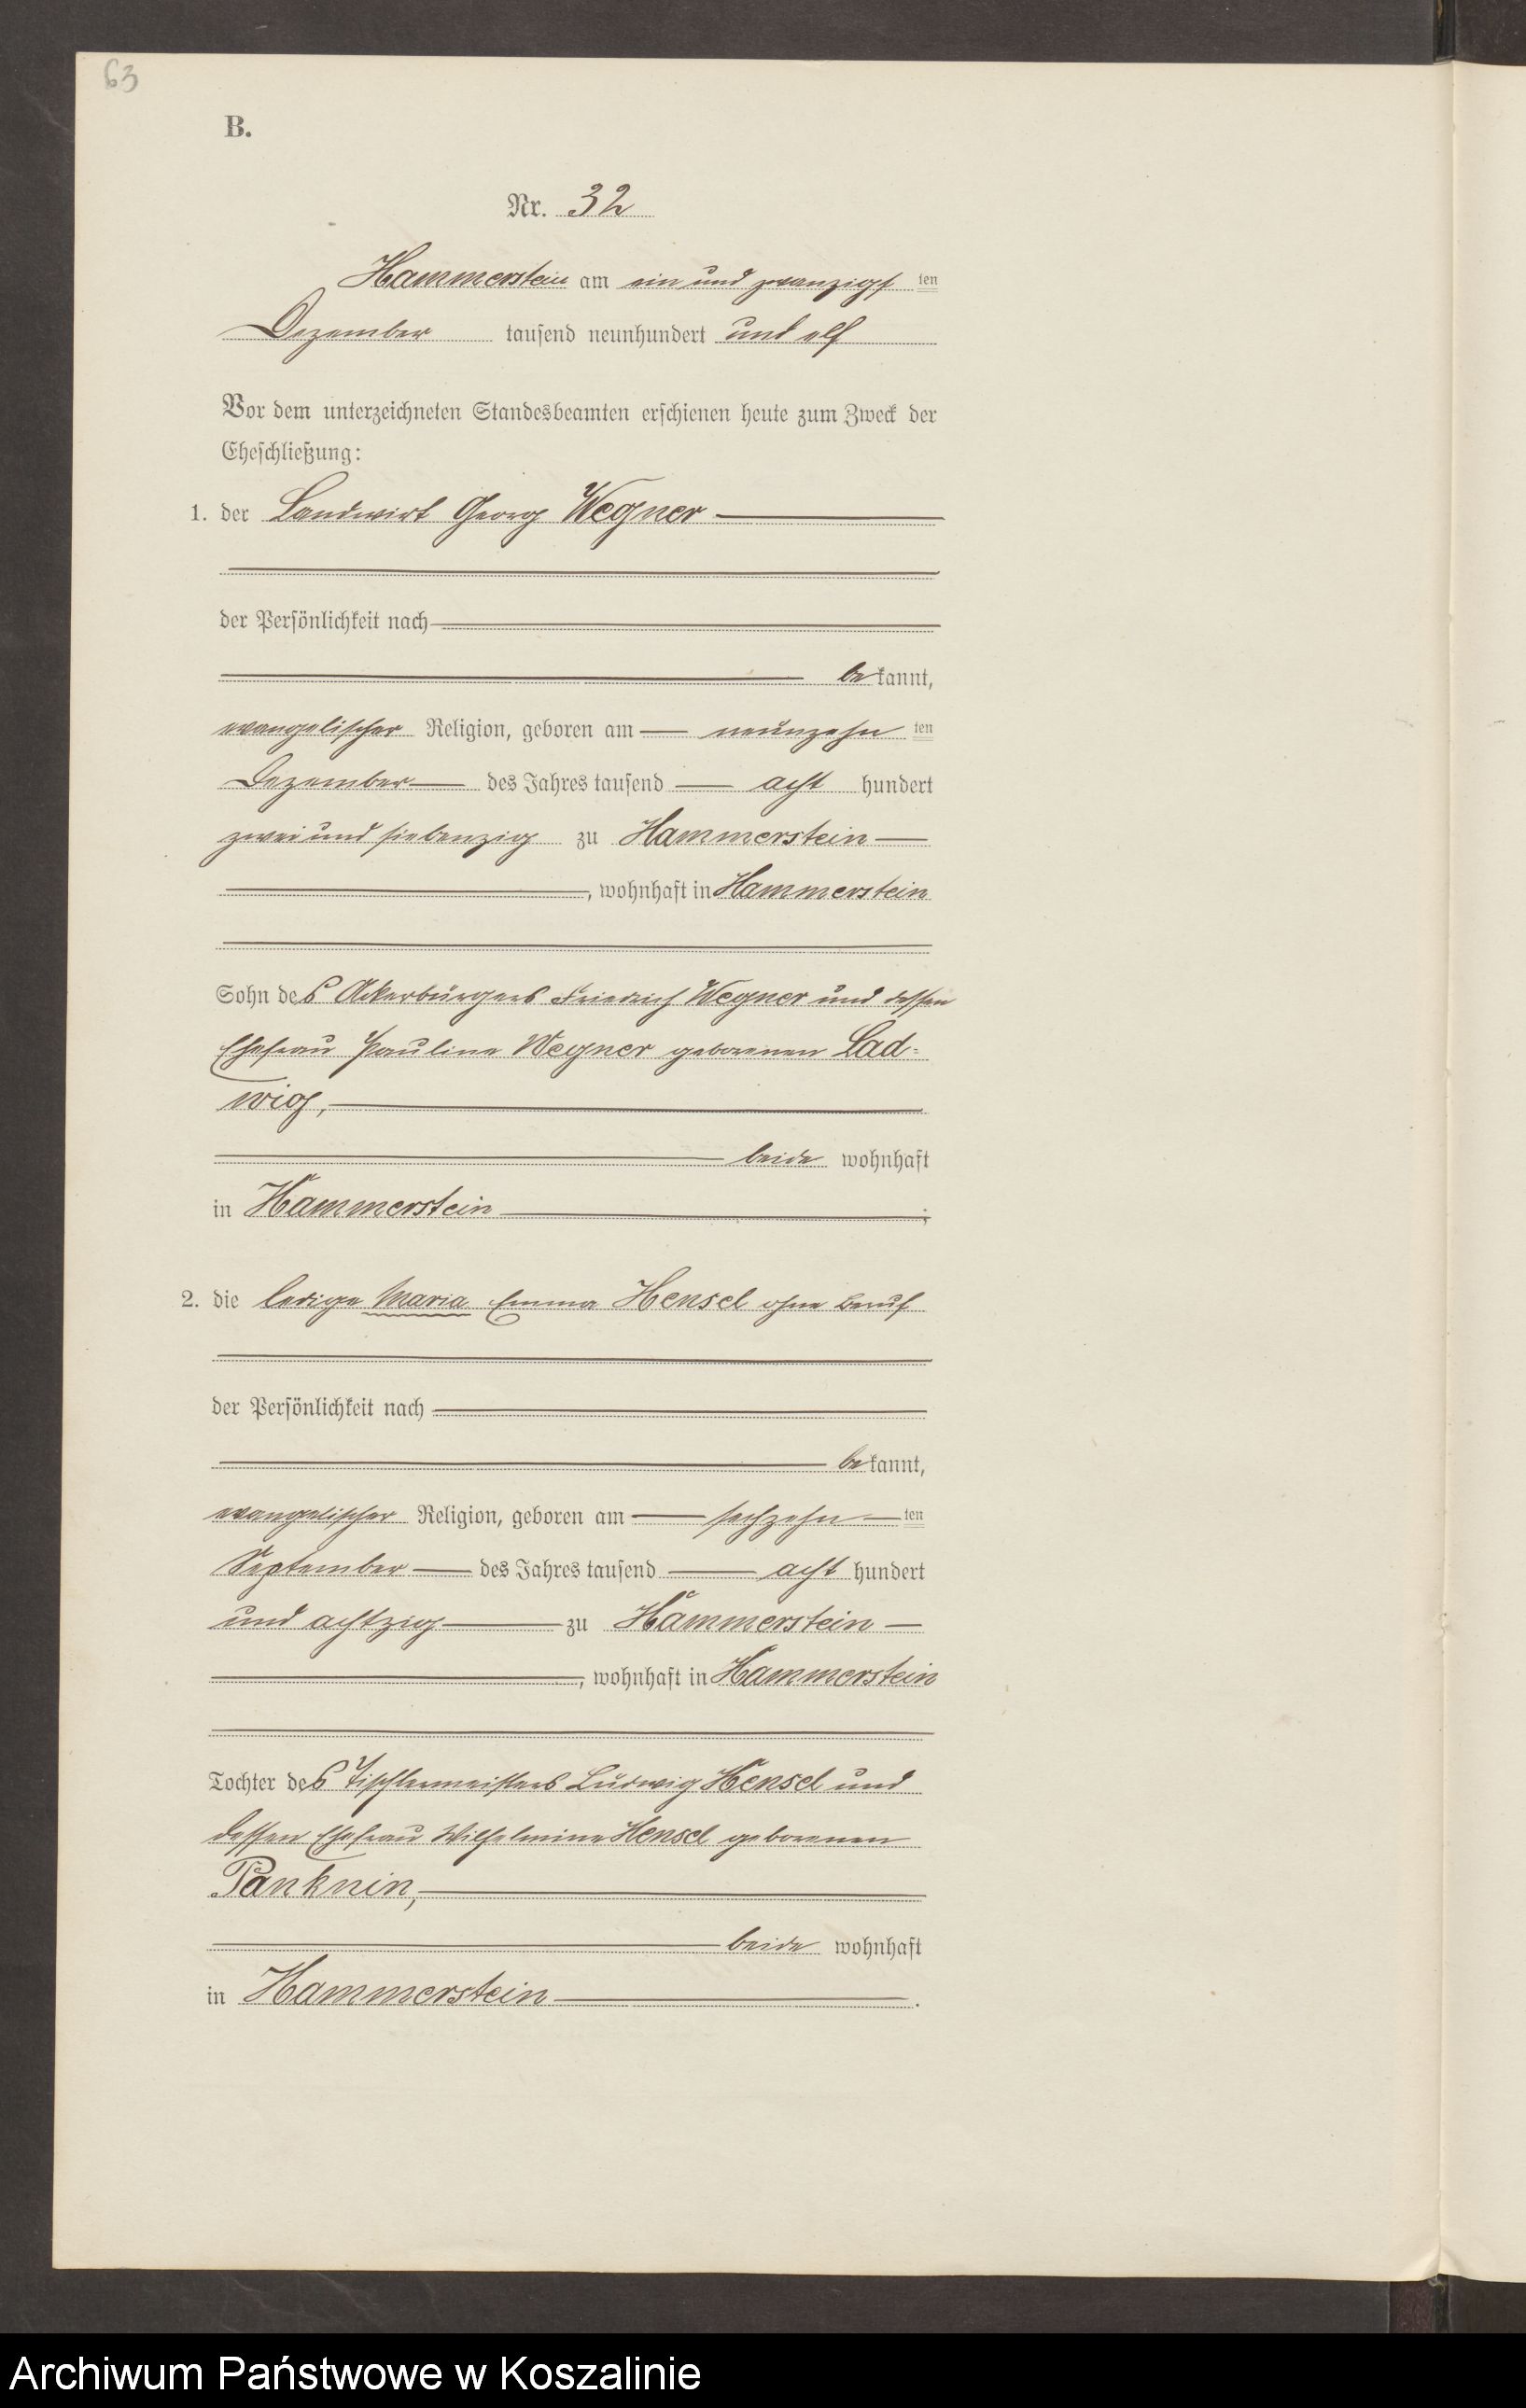 63
B.
Nr. 32
Hammerstein am ein und zwanzigsten
Dezember tausend neunhundert und elf
Vor dem unterzeichneten Standesbeamten erschienen heute zum Zweck der
Eheschließung:
1. der Landwirt Georg Wegner
der Persönlichkeit nach
bekannt,
evangelischer Religion, geboren am neunzehnten
Dezember des Jahres tausend acht hundert
zwei und siebenzig zu Hammerstein
, wohnhaft in Hammerstein
Sohn des Ackerbürgers Friedrich Wegner und dessen
Ehefrau Pauline Wegner geborenen Lad-
wig,
beide wohnhaft
in Hammerstein ;
2. die ledige Maria Emma Hensel ohne Beruf
der Persönlichkeit nach
bekannt,
evangelischer Religion, geboren am sechzehnten
September des Jahres tausend acht hundert
und achtzig zu Hammerstein
, wohnhaft in Hammerstein
Tochter des Tischlermeisters Ludwig Hensel und
dessen Ehefrau Wilhelmine Hensel geborenen
Panknin,
beide wohnhaft
in Hammerstein .
Archiwum Państwowe w Koszalinie